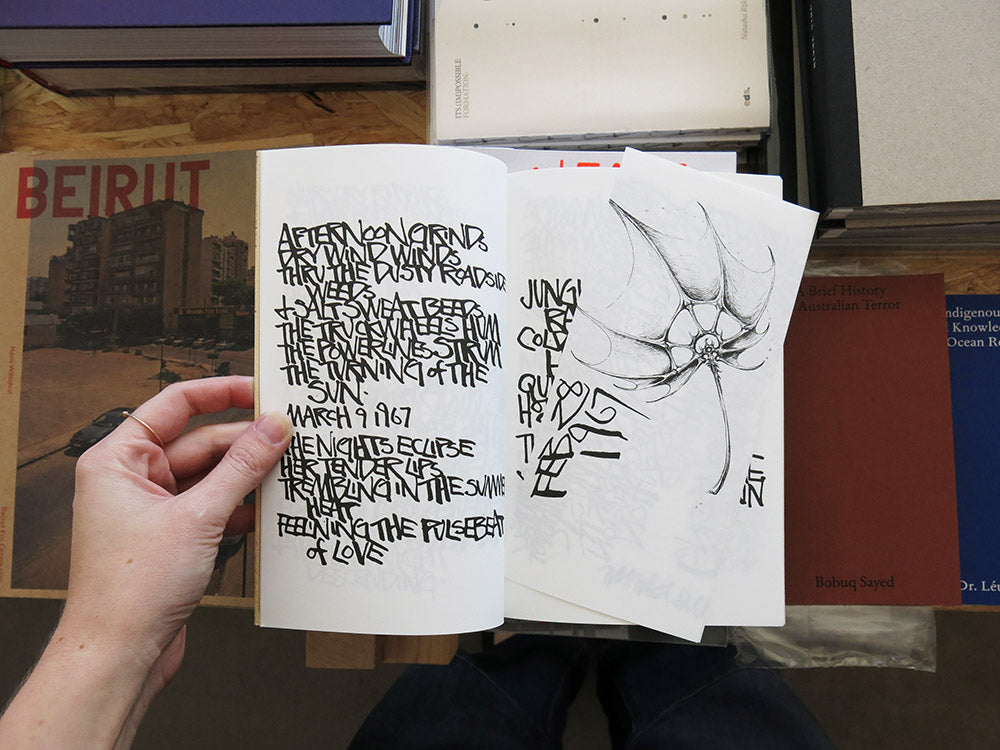 ITS (IM)POSSIBLE
FORMATION:
BEIRUT
AFTERNOON GRINDS
DRY WIND WINDS
THRU THE DUSTY ROADSIDE
WEEDS
& SALT SWEAT BEEDS
THE TRUCK WHEELS HUM
THE POWERLINES STRUM
THE TURNING of THE
SUN.
MARCH 9 1967
THE NIGHTS ECLIPSE
HER TENDER LIPS
TREMBLING IN THE SUMME
HEAT
FEELINING THE PULSEBEAT
of LOVE
JUNG
QU
FEB 8
1967
A Brief History
Australian Terror
Bobuq Sayed
ndigenou
Knowle
Ocean Re
Dr. Léu